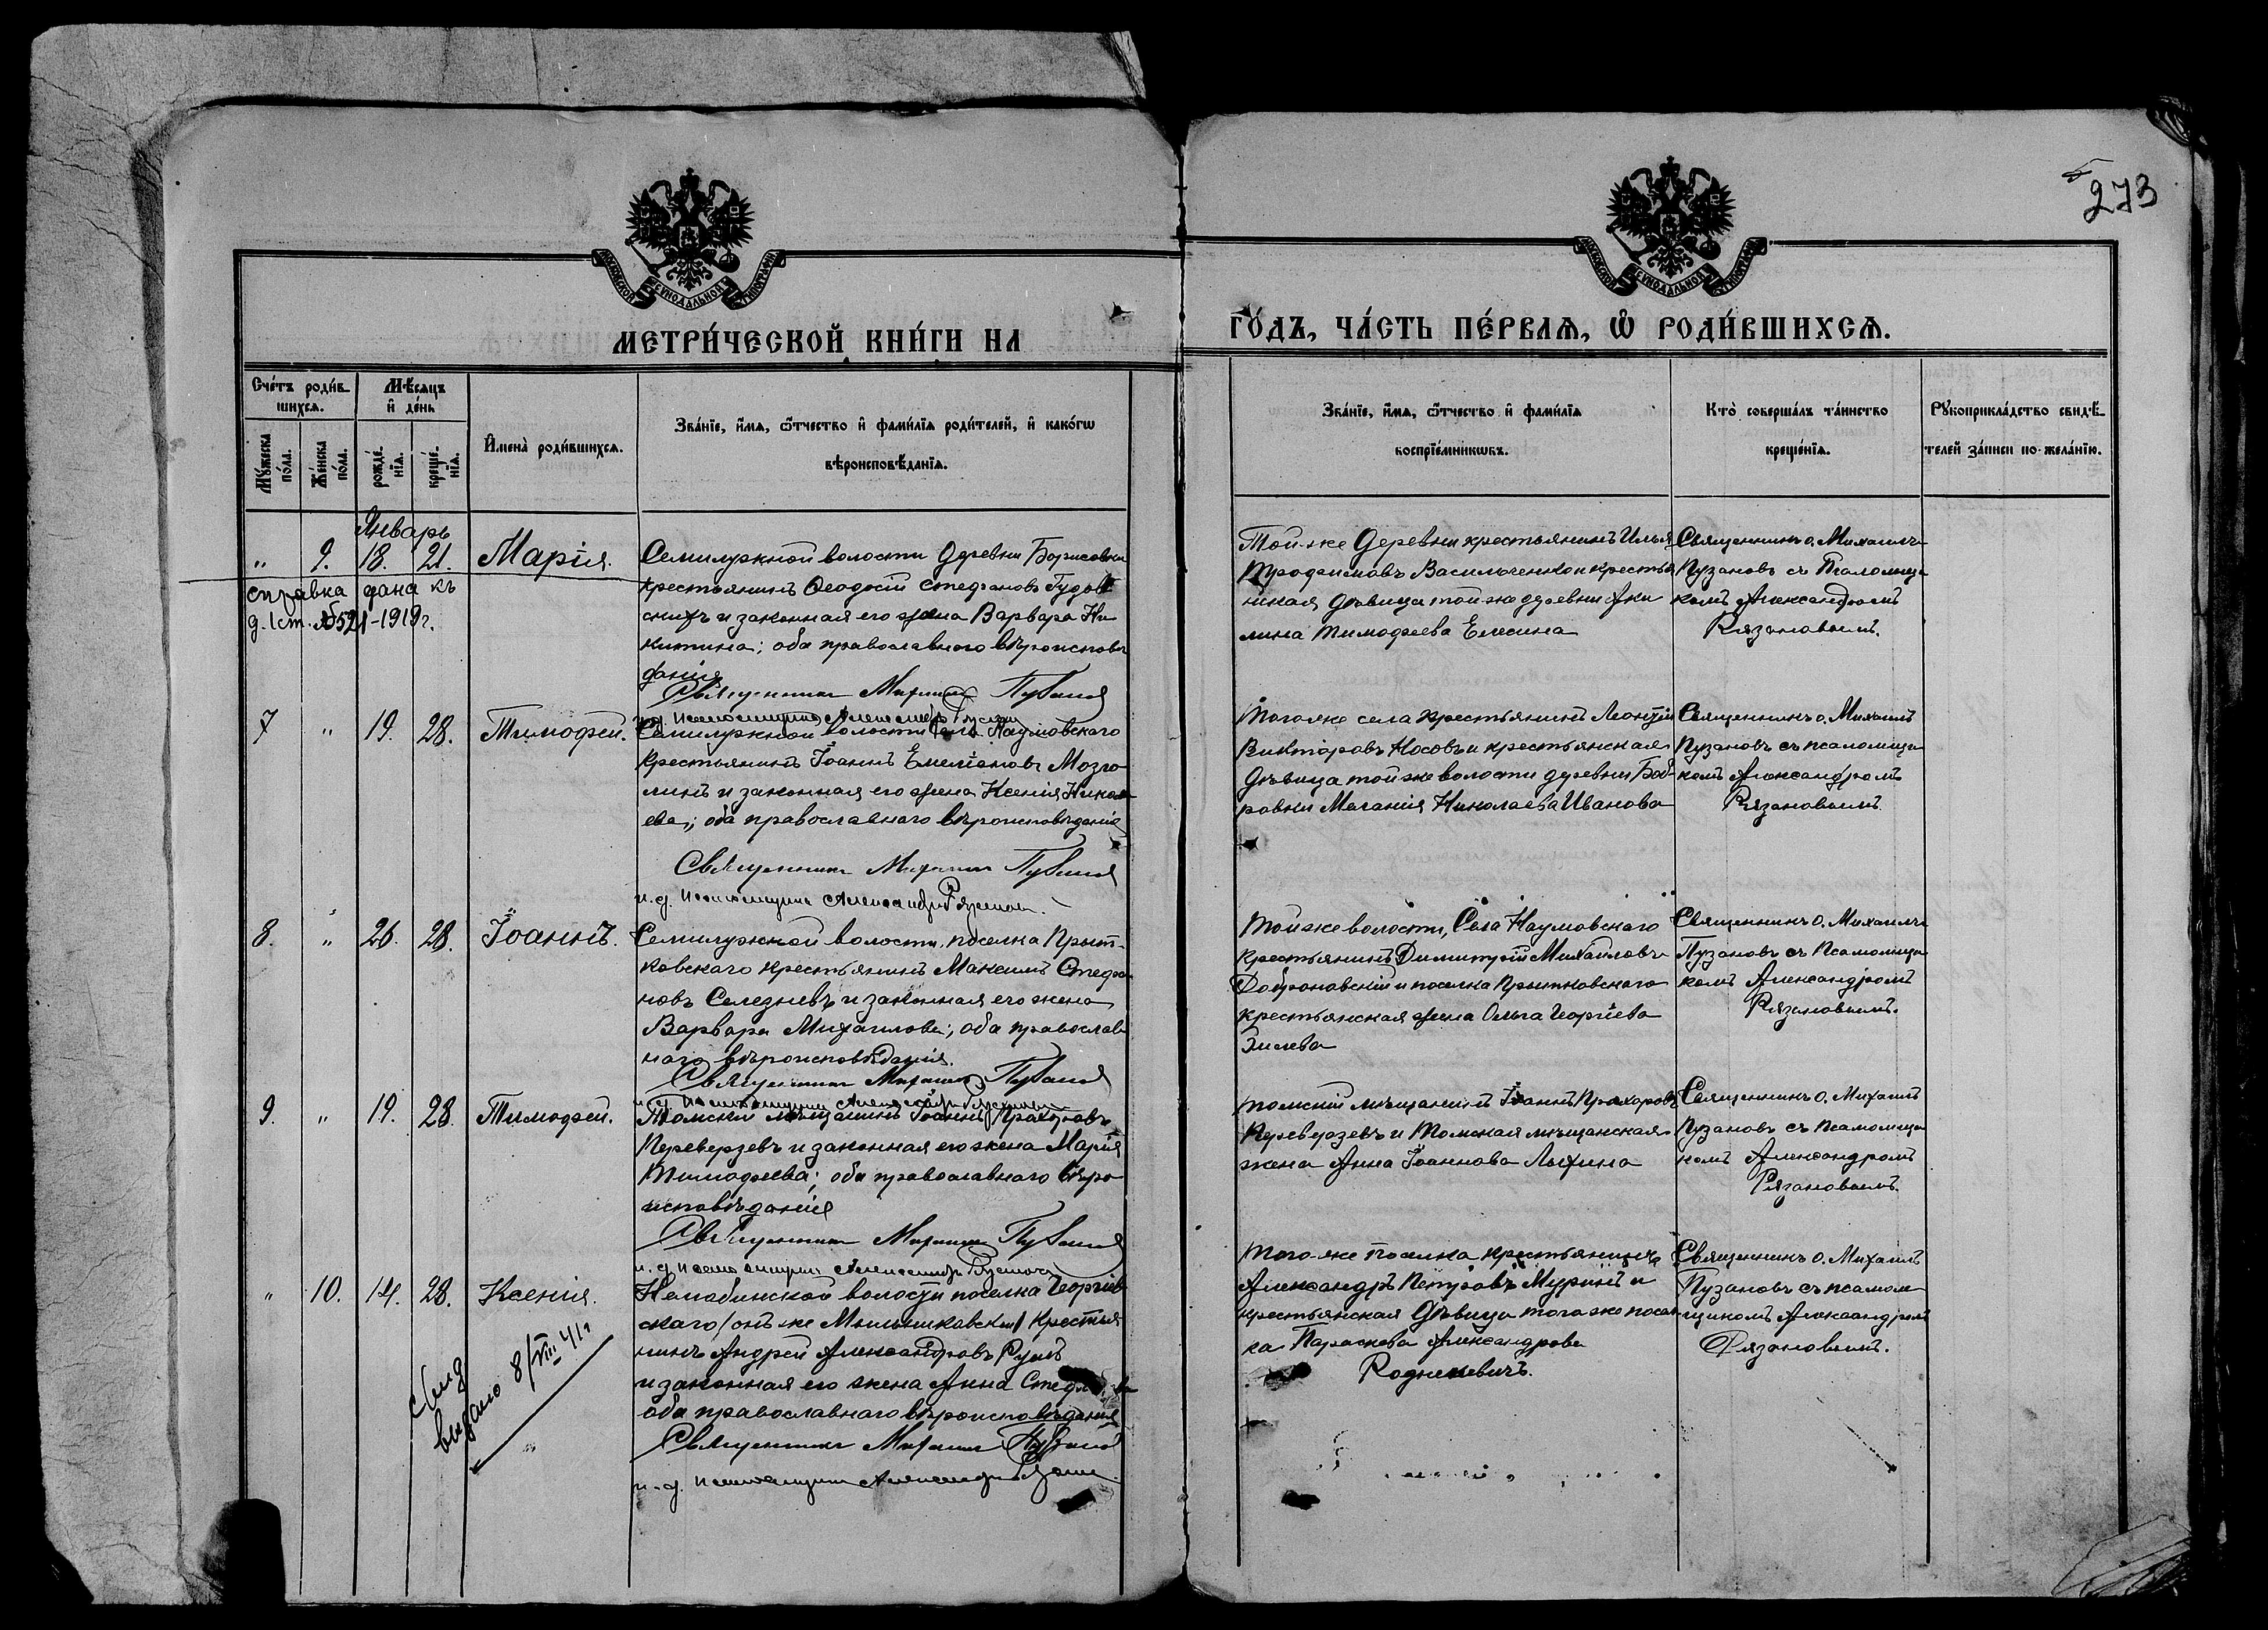 273
МОСКОВСКОЙ СУНОДАЛЬНОЙ ТИПОГРАФІИ
МОСКОВСКОЙ СУНОДАЛЬНОЙ ТИПОГРАФІИ
МЕТРИ́ЧЕСКОЙ КНИ́ГИ НА
ГО́ДЪ, ЧА́СТЬ ПЕ́РВАѦ, Ѿ РОДИ́ВШИХСѦ.
Сче́тъ роди́в-
шихсѧ.
Мѣ́сяцъ
и҆ де́нь
Мꙋ́жеска
по́ла.
Же́нска
по́ла.
рожде́-
нїѧ.
креще́-
нїѧ.
И҆мена̀ роди́вшихсѧ.
Зва́нїе, и҆́мѧ, ѻ҆́тчество и҆ фами́лїѧ роди́телей, и҆ како́гѡ
вѣроисповѣ́данїѧ.
Зва́нїе, и҆́мѧ, ѻ҆́тчество и҆ фами́лїѧ
воспрїе́мникѡвъ.
Кто̀ соверша́лъ та́инство
креще́нїѧ.
Рꙋкоприкла́дство свидѣ́-
телей за́писи по жела́нїю.
Январь
" 9. 18. 21. Марія.
справка дана къ
д. 1 ст. №521-1919г.
Семилужной волости деревни Борисовки
крестьянинъ Ѳеодосій Стефановъ
и законная его жена Варвара Ни
китина; оба православнаго вѣроисповѣ
данія
Священникъ Михаилъ Пузановъ
и.д. псаломщика Александръ Рязановъ
Той-же деревни крестьянинъ Илья
Трофимовъ Васильченко и крестья
нская дѣвица той же деревни Аки
лина Тимофеева Елесина
Священникъ о. Михаилъ
Пузановъ съ Псаломщи
комъ Александромъ
Рязановымъ.
7 " 19. 28. Тимофей.
Семилужной волости Села Наумовскаго
крестьянинъ Іоаннъ Емеліановъ Мозго
линъ и законная его жена Ксенія Никола
ева; оба православнаго вѣроисповѣданія
Священникъ Михаилъ Пузановъ
и.д. псаломщика Александръ Рязановъ.
Того-же села крестьянинъ Леонтій
Викторовъ Носовъ и крестьянская
дѣвица той же волости деревни Боб-
ровки Меланія Николаева Иванова
Священникъ о. Михаилъ
Пузановъ съ псаломщи
комъ Александромъ
Рязановымъ.
8. " 26. 28. Іоаннъ.
Семилужной волости, поселка Прыт-
ковскаго крестьянинъ Максимъ Стефа
новъ Селезневъ и законная его жена
Варвара Михаилова; оба православ
наго вѣроисповѣданія.
Священникъ Михаилъ Пузановъ
и.д. псаломщика Александръ Рязановъ
Той же волости, Села Наумовскаго
крестьянинъ Димитрій Михаиловъ
Доброновскій и поселка Прытковскаго
крестьянская жена Ольга Георгіева
Священникъ о. Михаилъ
Пузановъ съ Псаломщи
комъ Александромъ
Рязановымъ.
9. " 19. 28. Тимофей.
Томскій мѣщанинъ Іоаннъ Прохоровъ
Переверзевъ и законная его жена Марія
Тимофеева; оба православнаго вѣро
исповѣданія
Священникъ Михаилъ Пузановъ
и.д. псаломщика Александръ Рязановъ
Томскій мѣщанинъ Іоаннъ Прохоровъ
Переверзевъ и Томская мѣщанская
жена Анна Іоаннова Лыхина
Священникъ о. Михаилъ
Пузановъ съ Псаломщи
комъ Александромъ
Рязановымъ.
" 10. 14. 28. Ксенія.
выдано 8/VIII 41г
Нелюбинской волости поселка Георгіев
скаго (онъ же Мыльниковскій) крестья
нинъ Андрей Александровъ
и законная его жена Анна
оба православнаго вѣроисповѣданія
Священникъ Михаилъ Пузановъ
и.д. псаломщика Александръ Рязановъ.
Того-же поселка крестьянинъ
Александръ Петровъ Муринъ и
крестьянская дѣвица того же посел
ка Параскева Александрова
Родненевичъ.
Священникъ о. Михаилъ
Пузановъ съ псалом
щикомъ Александромъ
Рязановымъ.